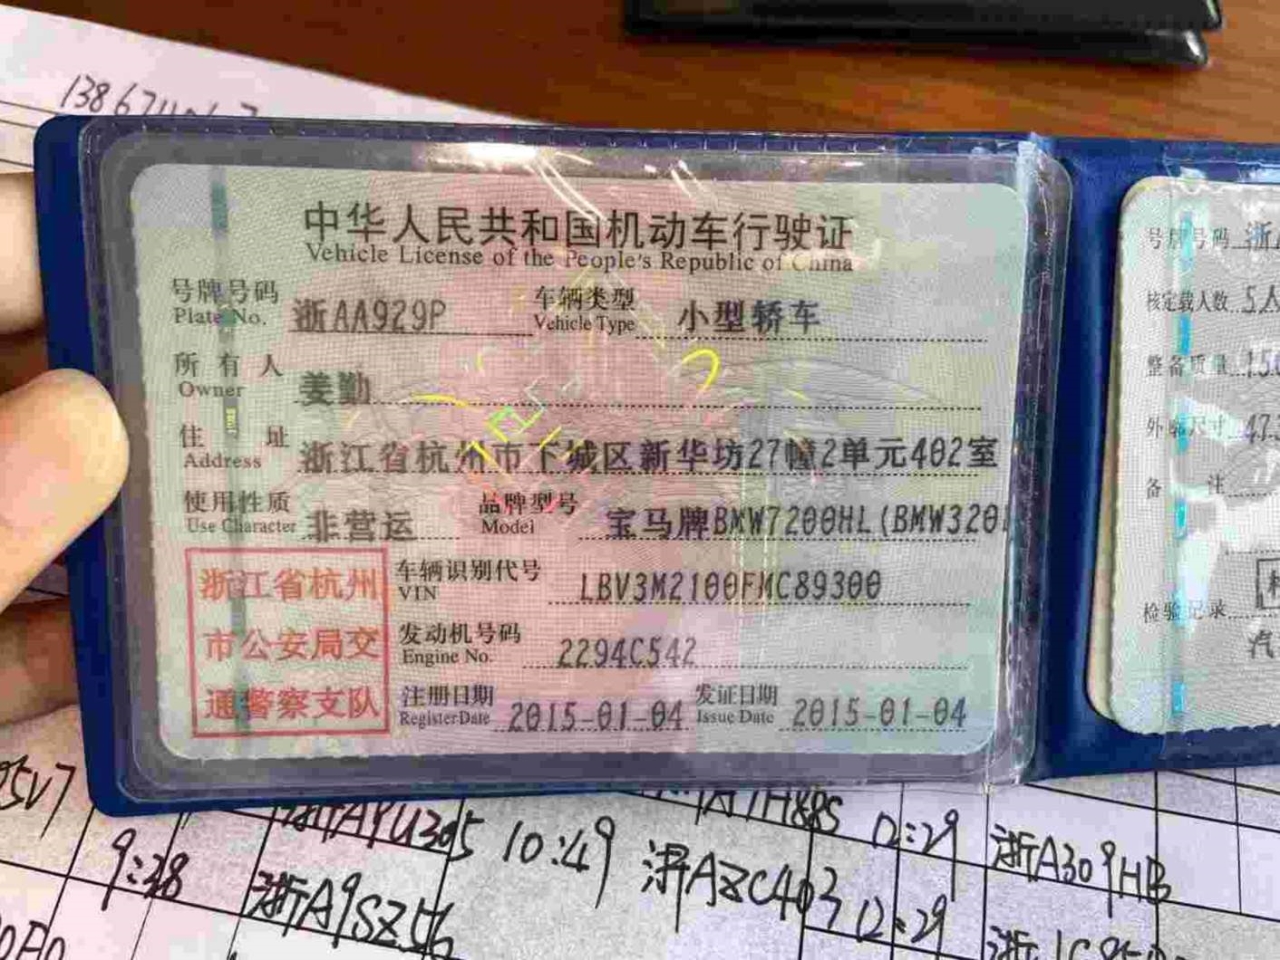 中华人民共和国机动车行驶证
Vehicle License of the People's Republic of China
号牌号码 浙AA929P 车辆类型 小型轿车
Plate No. Vehicle Type
所有人 姜勤
Owner
住址 浙江省杭州市下城区新华坊27幢2单元402室
Address
使用性质 非营运 品牌型号 宝马牌BMW7200HL(BMW320
Use Character Model
浙江省杭州
市公安局交
通警察支队
车辆识别代号 LBV3M2100FMC89300
VIN
发动机号码 2294C542
Engine No.
注册日期 2015-01-04 发证日期 2015-01-04
Register Date Issue Date
号牌号码 浙
核定载人数 5人
整备质量
外廓尺寸
备注
检验记录
汽
9:38 浙A9SZ56 10:49 浙AZC403 12:29 浙A309HB
12:29